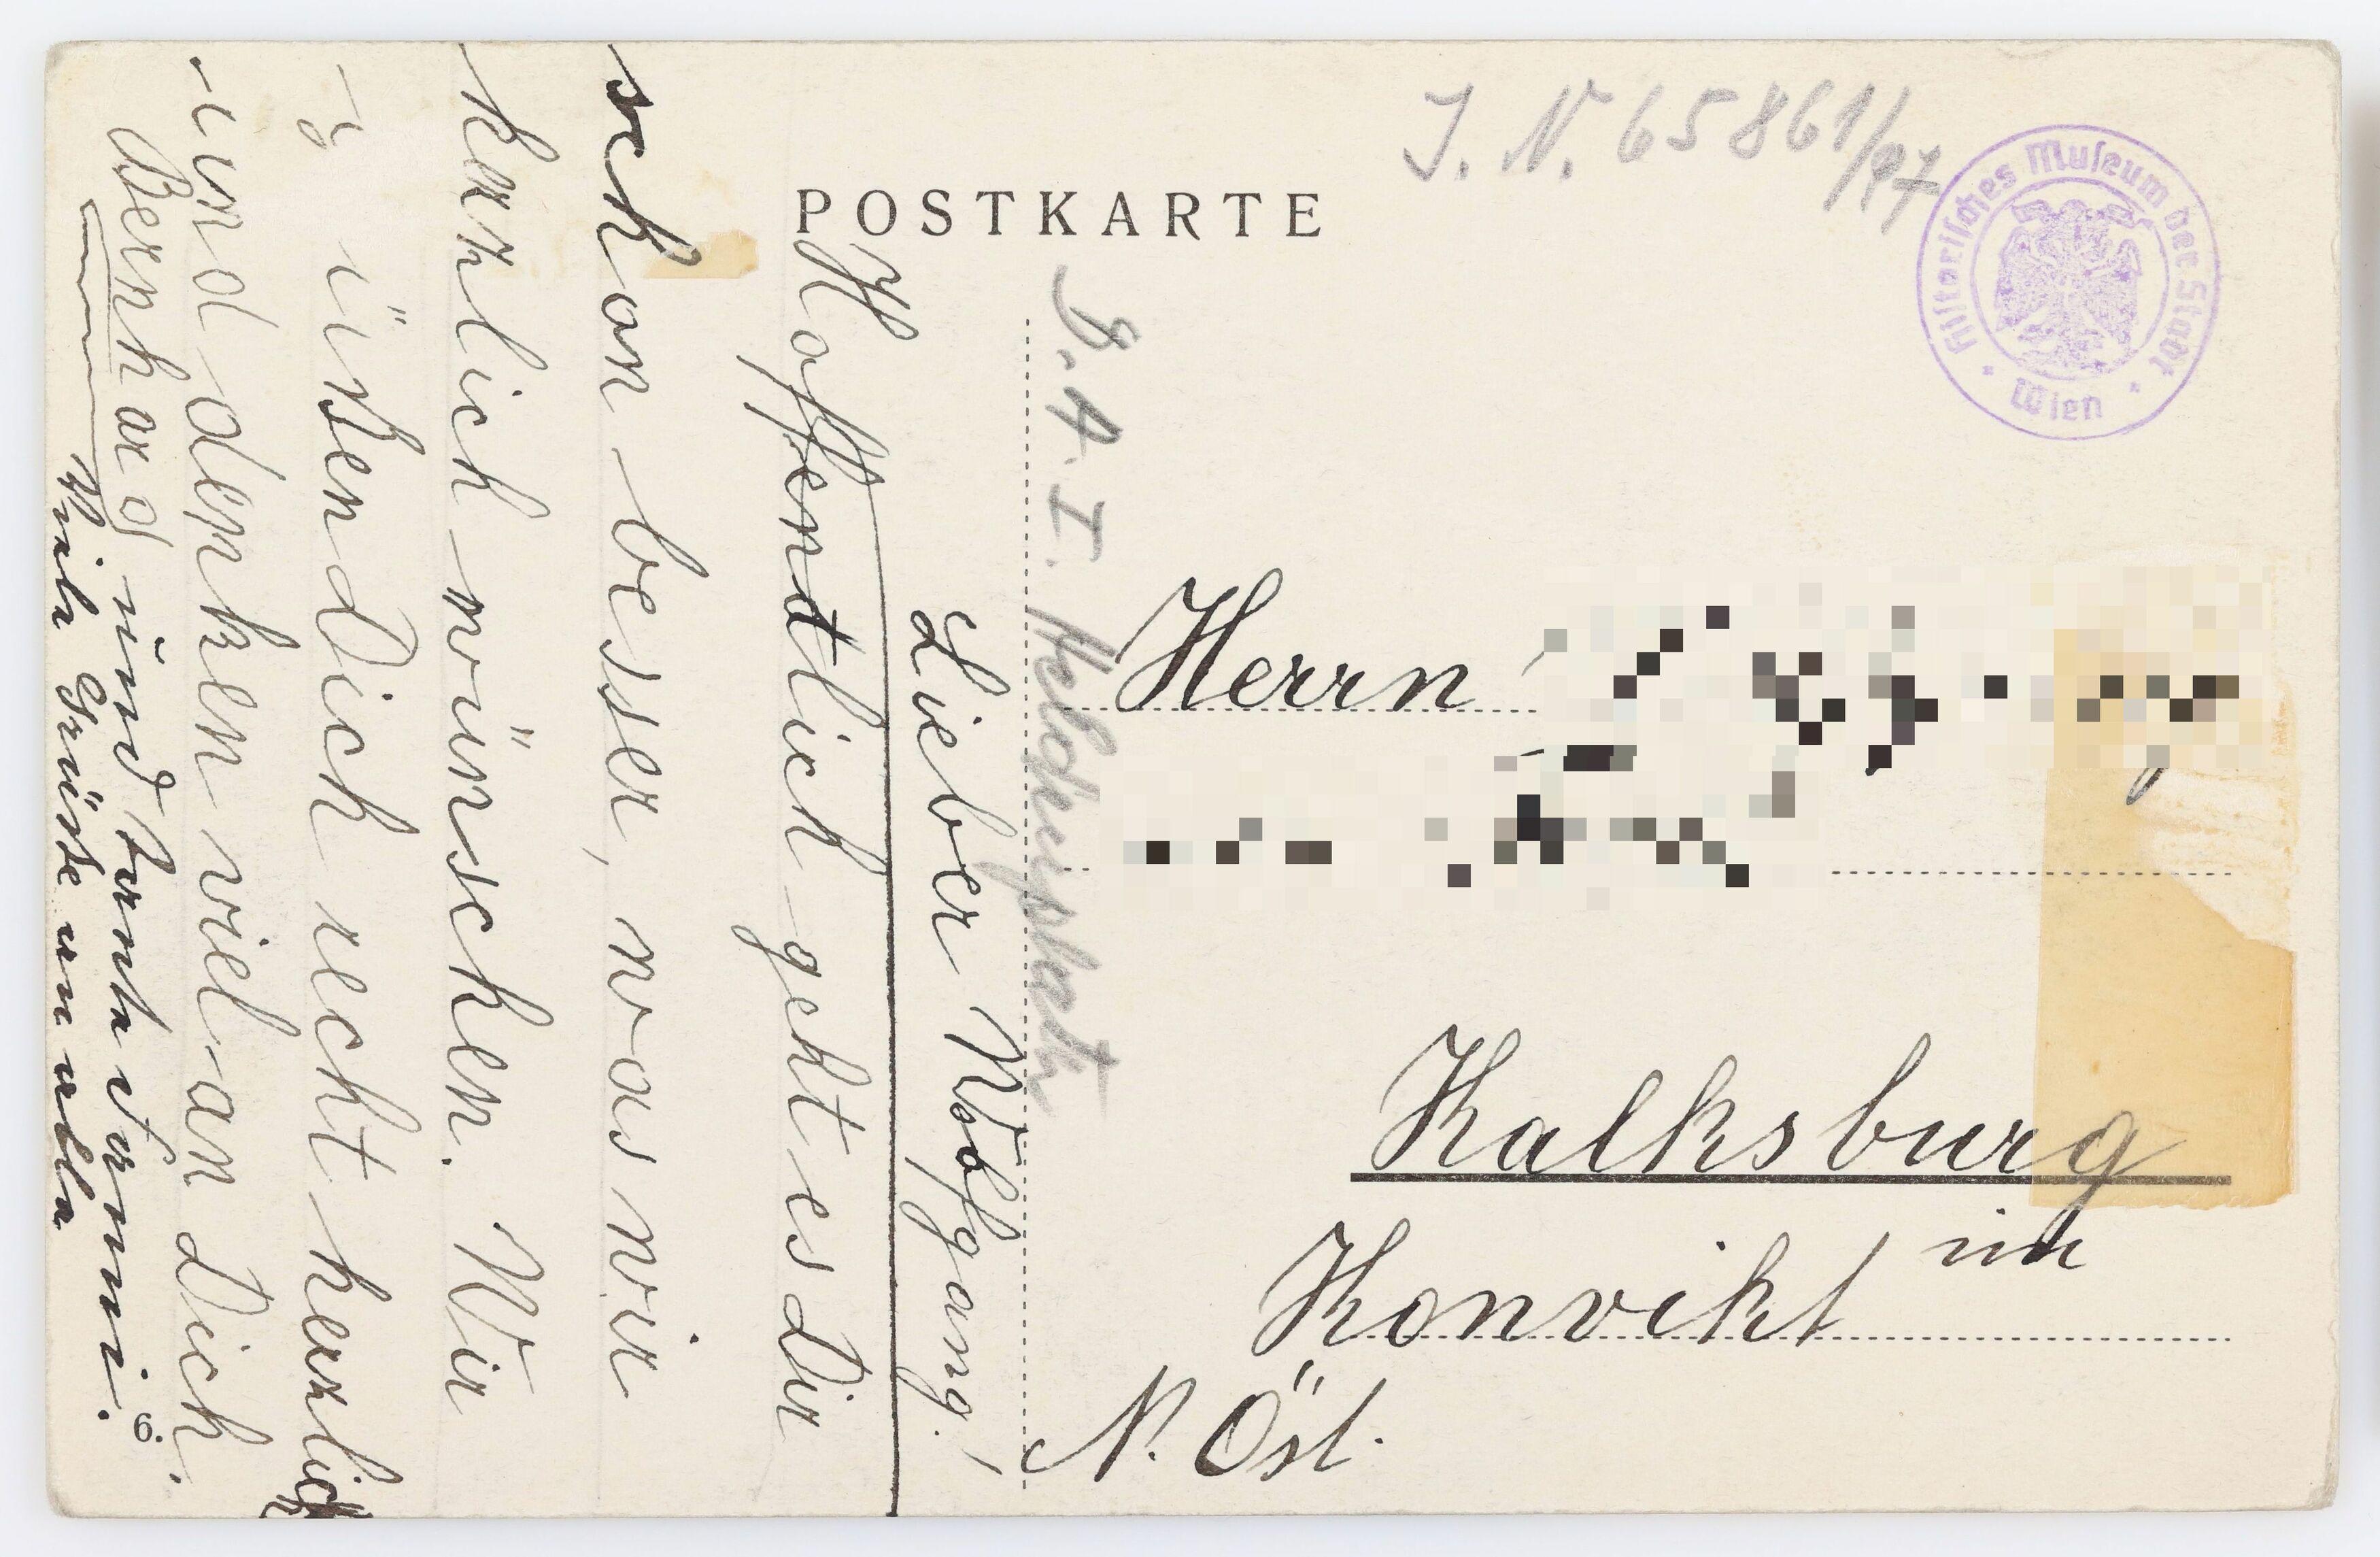 POSTKARTE
J. N. 65861/97
Historisches Museum der Stadt
Wien
D. A. I.
Herrn
Kalksburg
im
Konvikt
N. Öst.
Lieber Wolfgang!
Hoffentlich geht es Dir
schon besser, was wir
herzlich wünschen. Wir
küssen Dich recht herzlich
und denken viel an Dich.
Bernhard und
Viele Grüsse an alle
6.